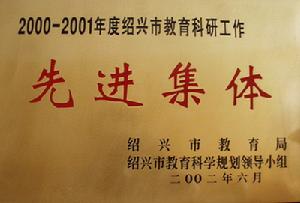 2000-2001年度绍兴市教育科研工作
先进集体
绍兴市教育局
绍兴市教育科学规划领导小组
二00二年六月